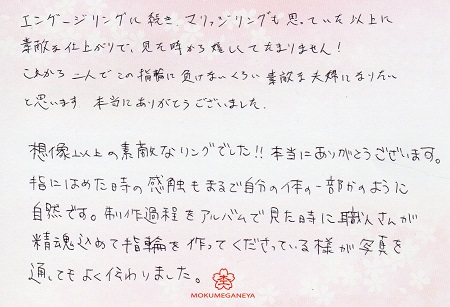 エンゲージリングに続き、マリッジリングも思っていた以上に
素敵な仕上がりで、見た時から嬉しくてたまりません！
これから二人でこの指輪に負けないくらい素敵な夫婦になりたい
と思います。本当にありがとうございました。
想像以上の素敵なリングでした!!本当にありがとうございます。
指にはめた時の感触もまるで自分の体の一部かのように
自然です。制作過程をアルバムで見た時に職人さんが
精魂込めて指輪を作ってくださっている様が写真を
通してもよく伝わりました。
MOKUMEGANEYA